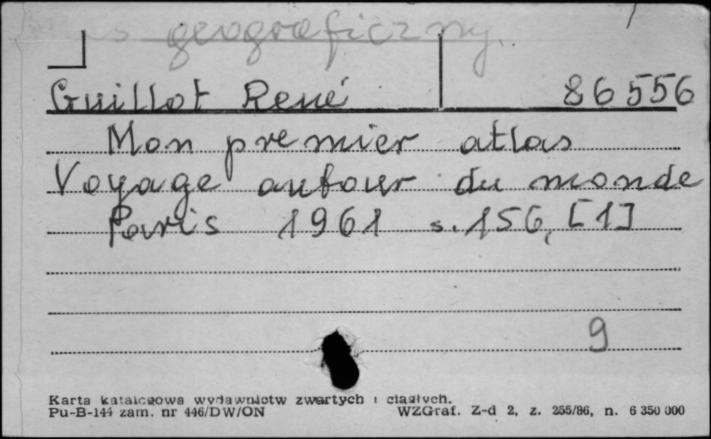 Atlas geograficzny.
Guillot René 86556
Mon premier atlas
Voyage autour du monde
Paris 1961 s. 156, [1]
9
Karta katalogowa wydawnictw zwartych i ciągłych.
Pu-B-144 zam. nr 446/DW/ON WZGraf. Z-d 2, z. 255/86, n. 6 350 000